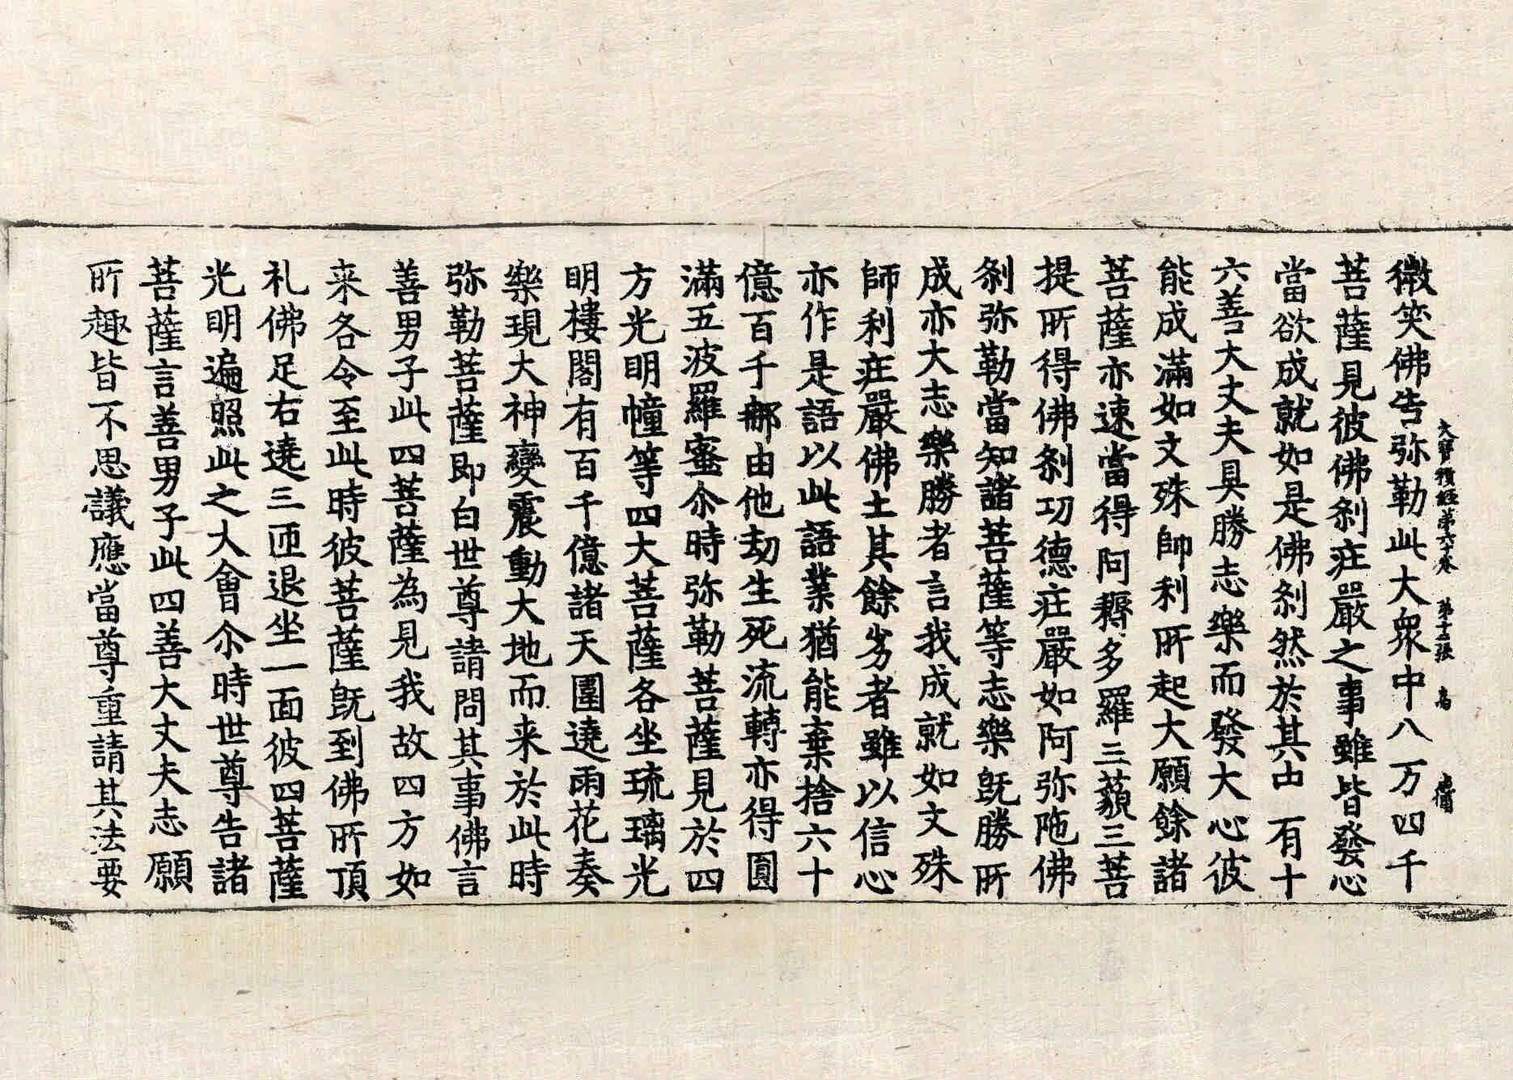 大寶積經第六十卷 第十三張
微笑佛告弥勒此大衆中八万四千
菩薩見彼佛刹庄嚴之事雖皆發心
當欲成就如是佛刹然於其中有十
六善大丈夫具勝志樂而發大心彼
能成滿如文殊師利所起大願餘諸
菩薩亦速當得阿耨多羅三藐三菩
提所得佛刹功德庄嚴如阿弥陁佛
刹弥勒當知諸菩薩等志樂既勝所
成亦大志樂勝者言我成就如文殊
師利庄嚴佛土其餘劣者雖以信心
亦作是語以此語業猶能棄捨六十
億百千那由他劫生死流轉亦得圓
滿五波羅蜜尒時弥勒菩薩見於四
方光明幢等四大菩薩各坐琉璃光
明樓閣有百千億諸天圍遶雨花奏
樂現大神變震動大地而来於此時
弥勒菩薩即白世尊請問其事佛言
善男子此四菩薩為見我故四方如
来各令至此時彼菩薩既到佛所頂
礼佛足右遶三匝退坐一面彼四菩薩
光明遍照此之大會尒時世尊告諸
菩薩言善男子此四善大丈夫志願
所趣皆不思議應當尊重請其法要